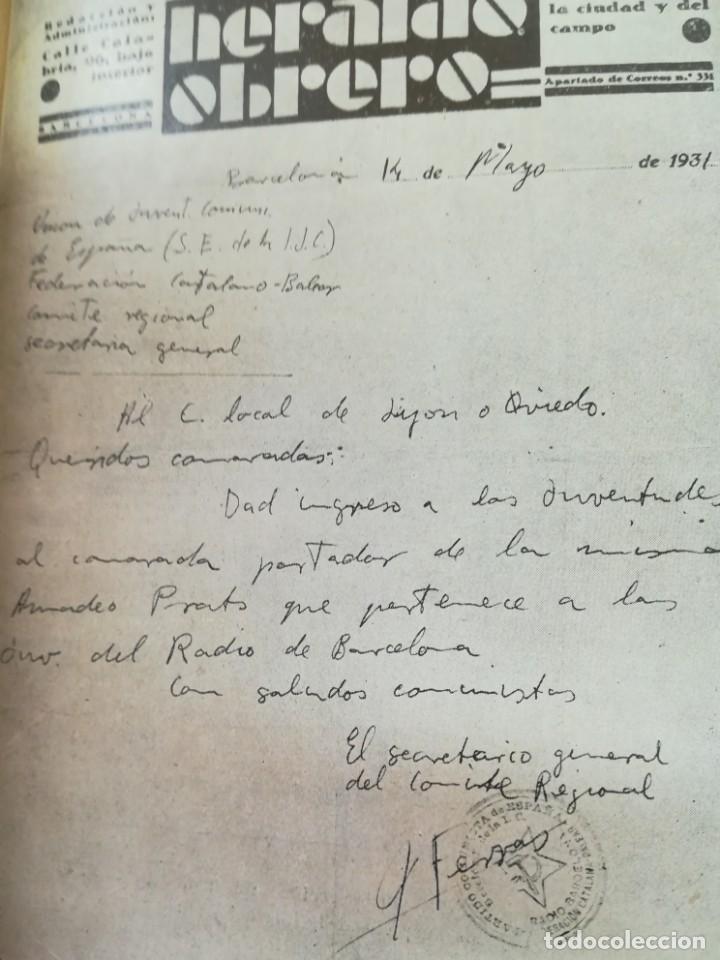 Redacción y
Administración:
Calle Cala-
bria, 96, bajo
interior
BARCELONA
heraldo
obrero
la ciudad y del
campo
Apartado de Correos n.º 334
Barcelona 14 de Mayo de 1931
Union de Juvent. Comuni.
de España (S. E. de la I.J.C.)
Federación Catalano-Balear
Comite regional
secretaria general
Al C. local de Gijon o Oviedo.
Queridos camaradas:
Dad ingreso a las Juventudes
al camarada portador de la misma
Amadeo Prats que pertenece a las
Juv. del Radio de Barcelona
Con saludos comunistas
El secretario general
del Comite Regional
PARTIDO COMUNISTA de ESPAÑA
de la I. C.
RADIO BARCELONA
FEDERACIÓN CATALANO
todocoleccion
todocoleccion.net